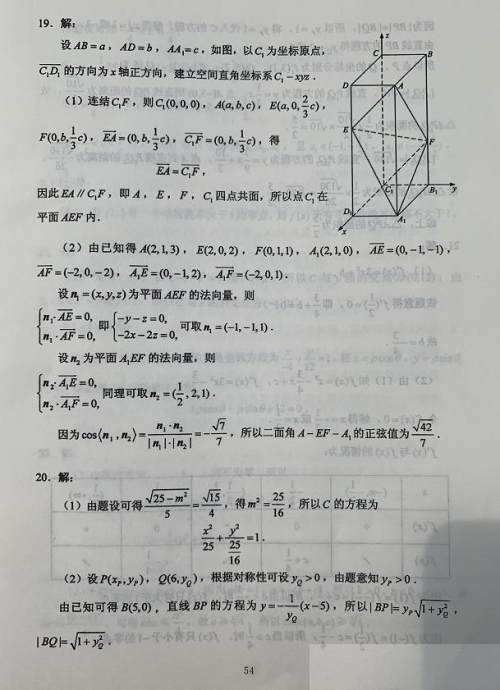 19. 解:
设 AB=a, AD=b, AA₁=c, 如图, 以 C₁ 为坐标原点,
C₁D₁ 的方向为 x 轴正方向, 建立空间直角坐标系 C₁-xyz.
(1) 连结 C₁F, 则 C₁(0,0,0), A(a,b,c), E(a,0,2/3 c),
F(0,b,1/3 c), EA=(0,b,1/3 c), C₁F=(0,b,1/3 c), 得
EA=C₁F,
因此 EA∥C₁F, 即 A, E, F, C₁ 四点共面, 所以点 C₁ 在
平面 AEF 内.
z
C
B
D
A
E
F
C₁
B₁
y
D₁
A₁
x
(2) 由已知得 A(2,1,3), E(2,0,2), F(0,1,1), A₁(2,1,0), AE=(0,-1,-1),
AF=(-2,0,-2), A₁E=(0,-1,2), A₁F=(-2,0,1).
设 n₁=(x,y,z) 为平面 AEF 的法向量, 则
{n₁·AE=0, n₁·AF=0, 即 {-y-z=0, -2x-2z=0, 可取 n₁=(-1,-1,1).
设 n₂ 为平面 A₁EF 的法向量, 则
{n₂·A₁E=0, n₂·A₁F=0, 同理可取 n₂=(1/2,2,1).
因为 cos⟨n₁,n₂⟩=n₁·n₂/|n₁|·|n₂|=-√7/7, 所以二面角 A-EF-A₁ 的正弦值为 √42/7.
20. 解:
(1) 由题设可得 √(25-m²)/5=√15/4, 得 m²=25/16, 所以 C 的方程为
x²/25+y²/(25/16)=1.
(2) 设 P(x_P,y_P), Q(6,y_Q), 根据对称性可设 y_Q>0, 由题意知 y_P>0.
由已知可得 B(5,0), 直线 BP 的方程为 y=-1/y_Q(x-5), 所以 |BP|=y_P√(1+y_Q²),
|BQ|=√(1+y_Q²).
54